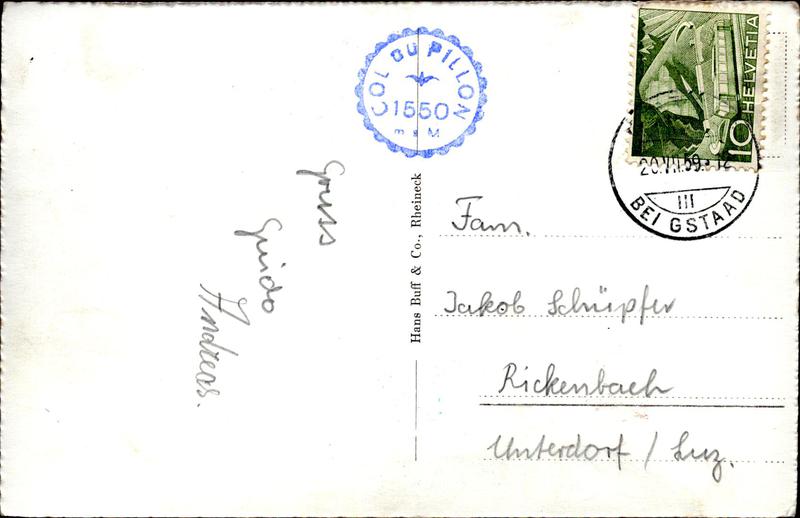 COL DU PILLON
1550
m s M
Gruss
Guido
Andreas.
Hans Buff & Co., Rheineck
HELVETIA
10
20.VII.59.-12
III
BEI GSTAAD
Fam.
Jakob Schüpfer
Rickenbach
Unterdorf / Luz.